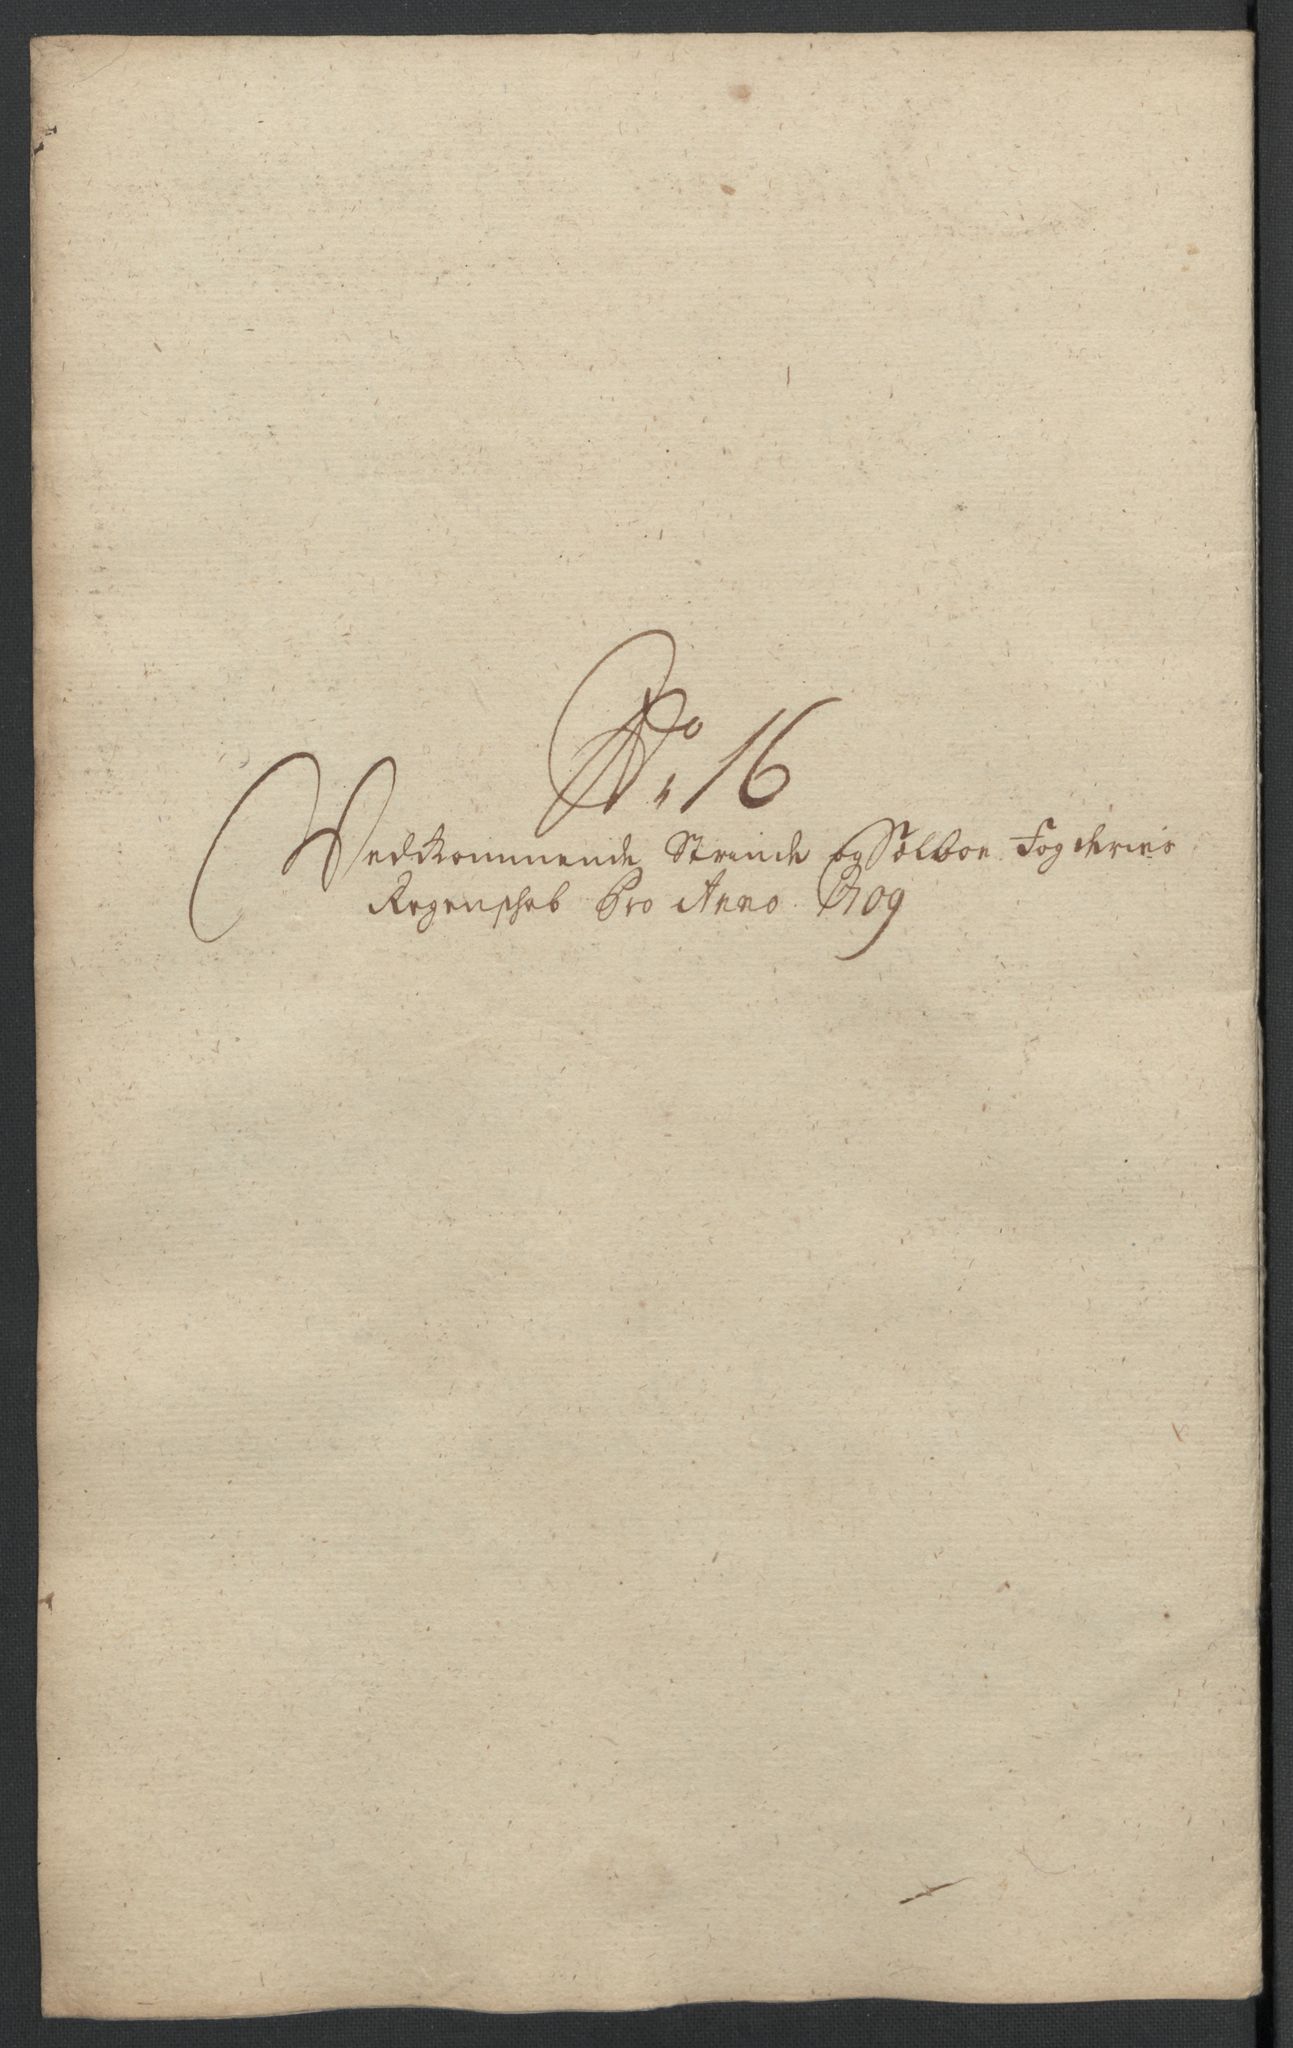 No. 16
Vedkommende Strinde og Selboe Fogderies
Regenschab Pro Anno 1709